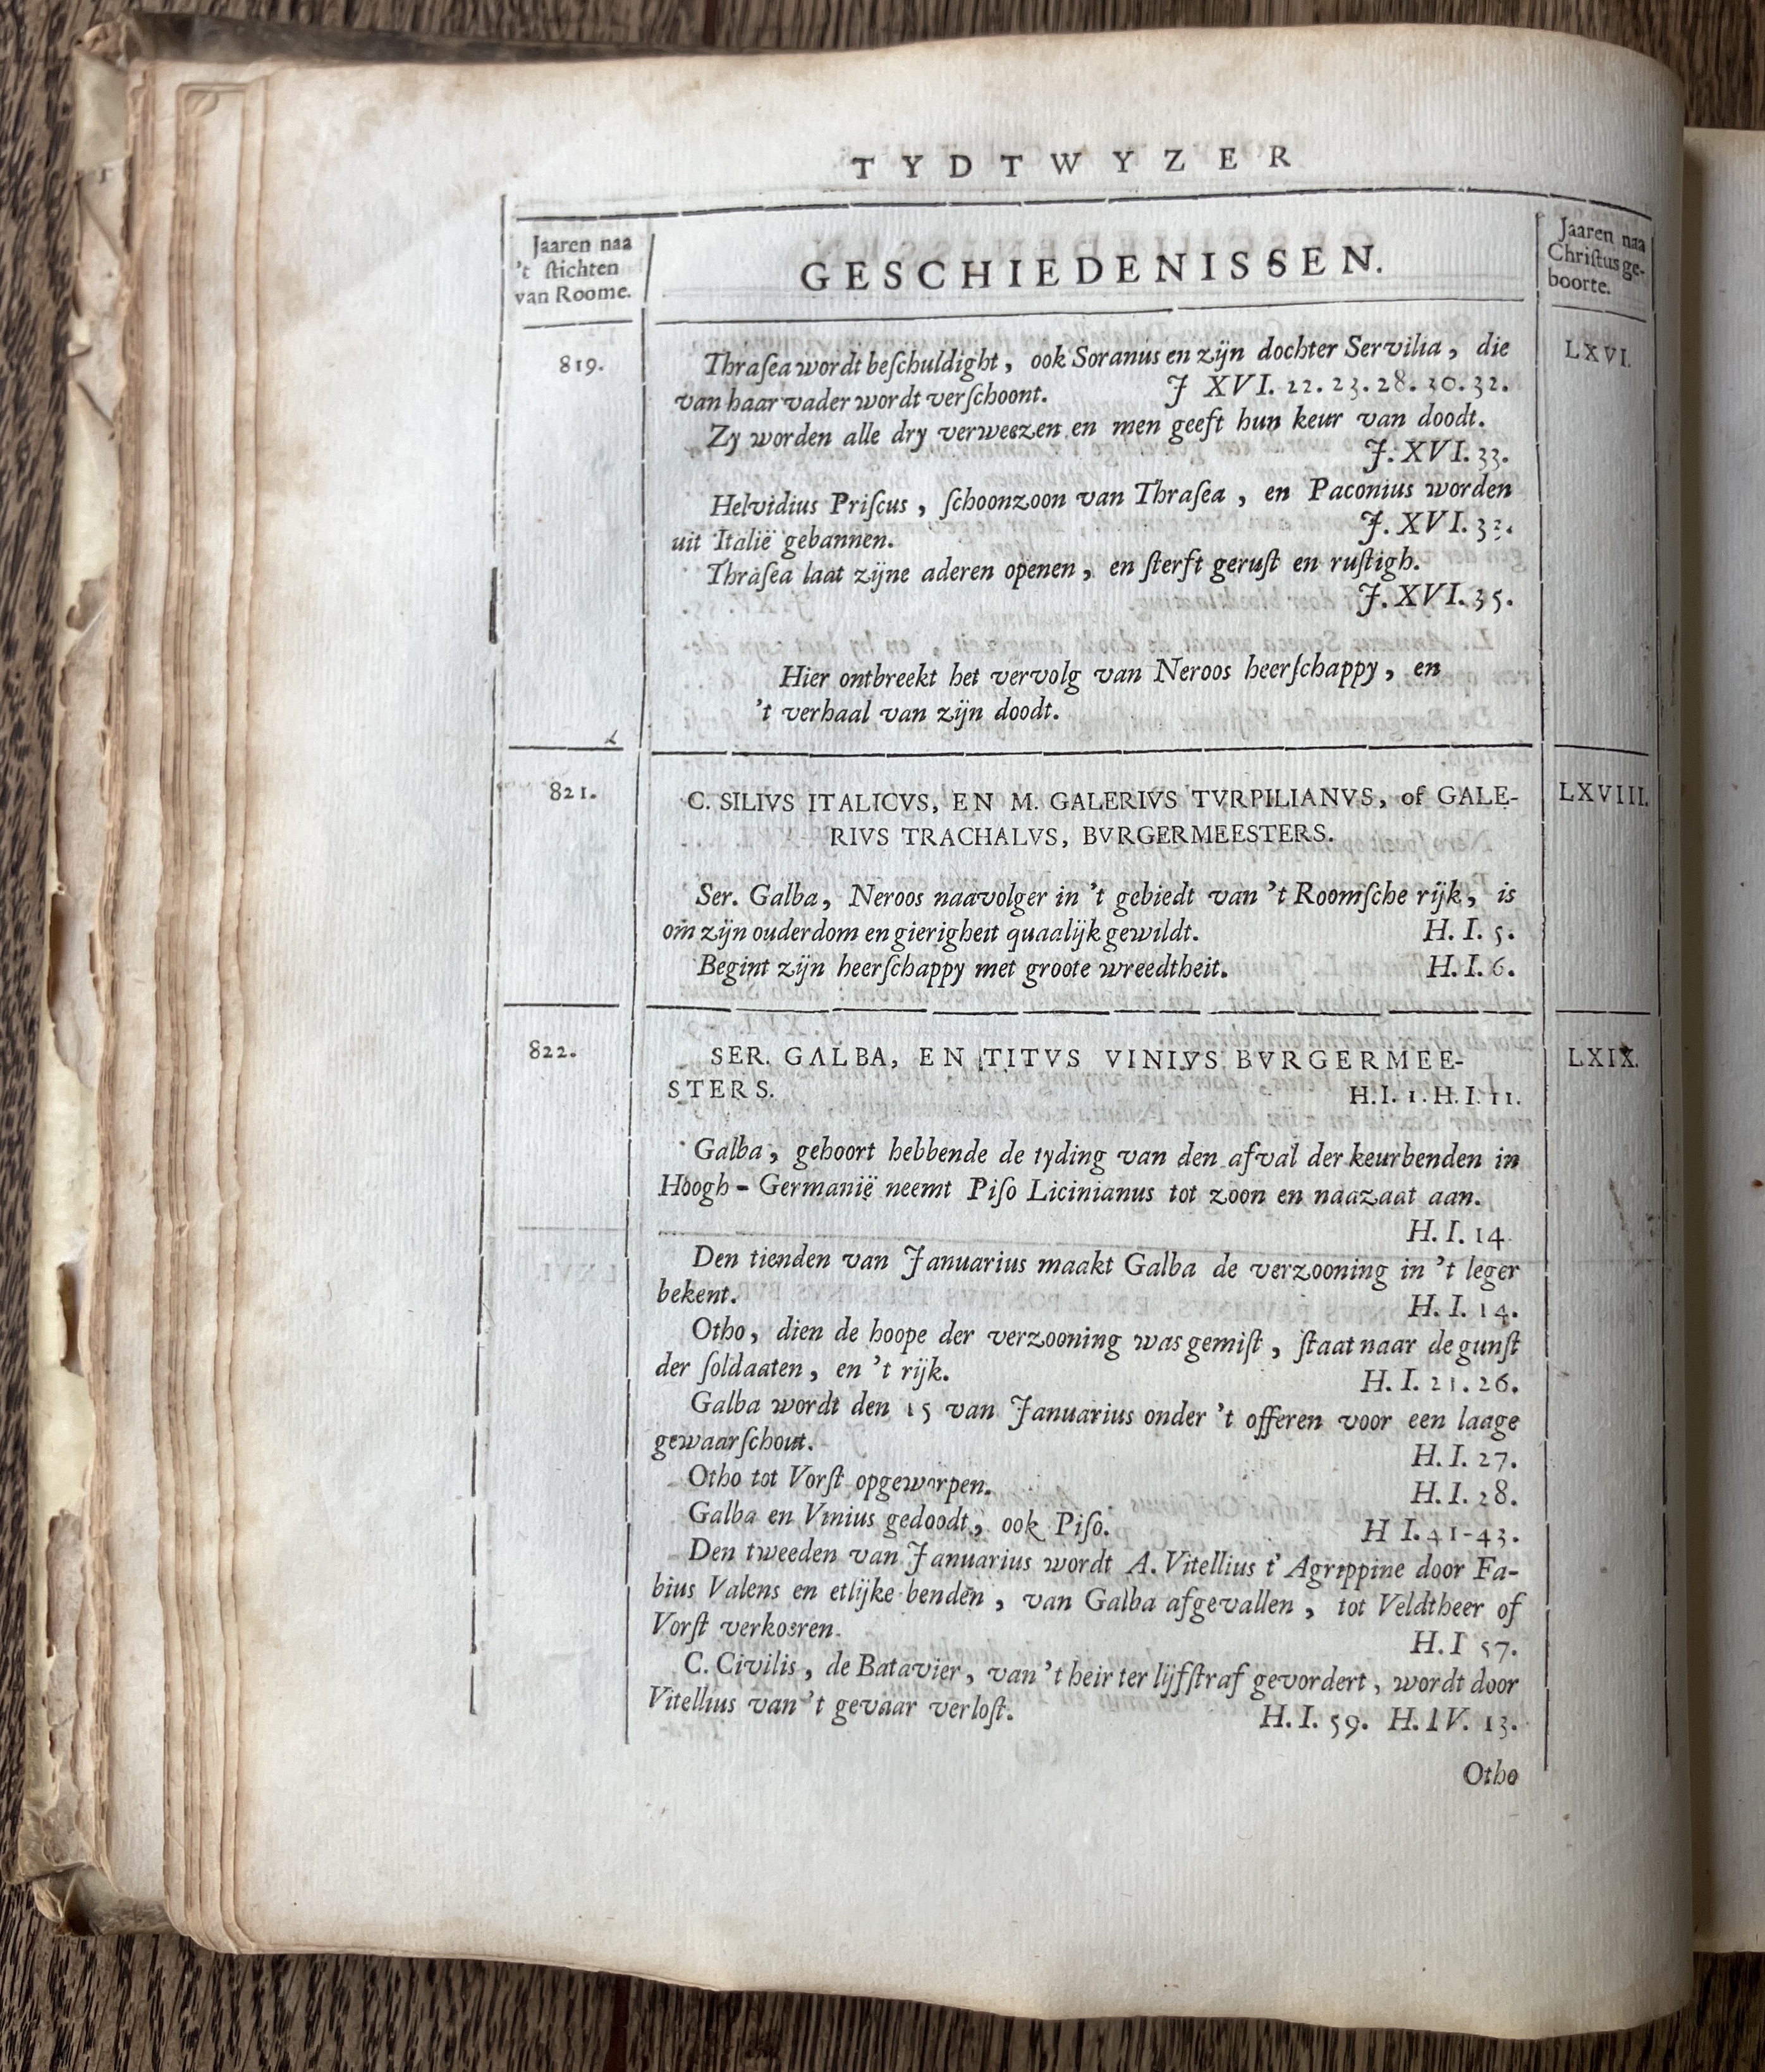 TYDTWYZER
Jaaren naa
't stichten
van Roome.
GESCHIEDENISSEN.
Jaaren naa
Christus ge-
boorte.
819.
Thraſea wordt beſchuldight, ook Soranus en zijn dochter Servilia, die
LXVI.
van haar vader wordt verſchoont. J XVI. 22. 23. 28. 30. 32.
Zy worden alle dry verweezen en men geeft hun keur van doodt.
J. XVI. 33.
Helvidius Priſcus, ſchoonzoon van Thraſea, en Paconius worden
uit Italië gebannen. J. XVI. 33.
Thraſea laat zijne aderen openen, en ſterft geruſt en ruſtigh.
J. XVI. 35.
Hier ontbreekt het vervolg van Neroos heerſchappy, en
't verhaal van zijn doodt.
821.
C. SILIVS ITALICVS, EN M. GALERIVS TVRPILIANVS, of GALE-
LXVIII.
RIVS TRACHALVS, BVRGERMEESTERS.
Ser. Galba, Neroos naavolger in 't gebiedt van 't Roomſche rijk, is
om zijn ouderdom en gierigheit quaalijk gewildt. H. I. 5.
Begint zijn heerſchappy met groote wreedtheit. H. I. 6.
822.
SER. GALBA, EN TITVS VINIVS BVRGERMEE-
LXIX.
STERS. H. I. 1. H. I. 11.
Galba, gehoort hebbende de tyding van den afval der keurbenden in
Hoogh-Germanië neemt Piſo Licinianus tot zoon en naazaat aan.
H. I. 14
Den tienden van Januarius maakt Galba de verzooning in 't leger
bekent. H. I. 14.
Otho, dien de hoope der verzooning was gemiſt, ſtaat naar de gunſt
der ſoldaaten, en 't rijk. H. I. 21. 26.
Galba wordt den 15 van Januarius onder 't offeren voor een laage
gewaarſchout. H. I. 27.
Otho tot Vorſt opgeworpen. H. I. 28.
Galba en Vinius gedoodt, ook Piſo. H I. 41-43.
Den tweeden van Januarius wordt A. Vitellius t' Agrippine door Fa-
bius Valens en etlijke benden, van Galba afgevallen, tot Veldtheer of
Vorſt verkooren. H. I 57.
C. Civilis, de Batavier, van 't heir ter lijfſtraf gevordert, wordt door
Vitellius van 't gevaar verloſt. H. I. 59. H. IV. 13.
Otho